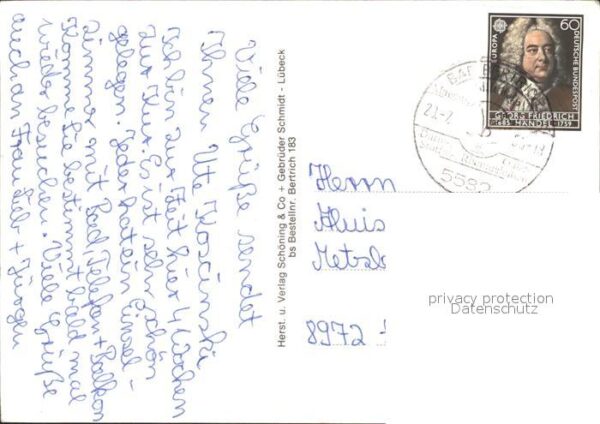 Viele Grüße sendet
Ihnen Ute Koscinski
Ich bin zur Zeit hier 4 Wochen
zur Kur. Es ist sehr schön
gelegen. Jeder hat ein Einzel-
zimmer mit Bad, Telefon + Balkon
Komme Sie bestimmt bald mal
wieder besuchen. Viele Grüße
auch an Frau Lieb + Jürgen
Herst. u. Verlag Schöning & Co + Gebrüder Schmidt - Lübeck
bs Bestellnr. Bertrich 183
EUROPA
60
DEUTSCHE BUNDESPOST
GEORG FRIEDRICH
HÄNDEL · 1759
1685
BAD
5582
Herrn
Aluis
Metzl
8972
privacy protection
Datenschutz